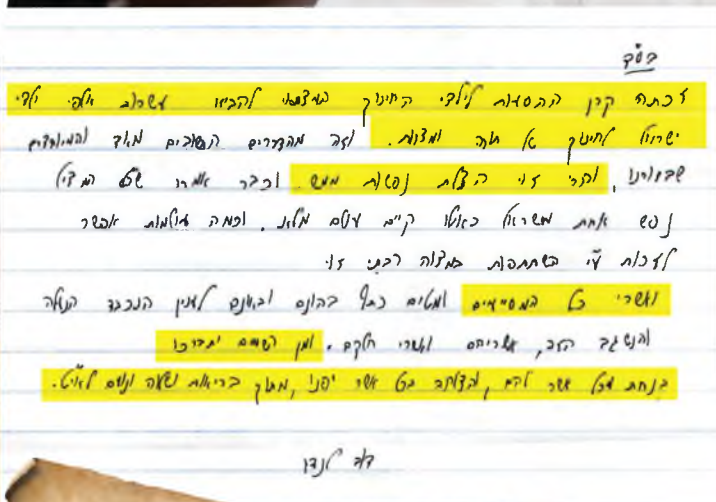 בס"ד
זכתה קרן ההסעות לילדי החינוך העצמאי להביא עשרות אלפי ילדי
ישראל לחינוך של תורה ומצוות. וזה מהדברים החשובים מאוד והמיוחדים
שבדורנו, והרי זוי הצלת נפשות ממש. וכבר אמרו שכל המציל
נפש אחת מישראל כאילו קיים עולם מלא. וכמה עולמות אפשר
לזכות ע"י השתתפות במצוה רבתי זו.
ואשרי כל המסייעים ומטים כתף בהונם ובאונם לענין הנכבד הנעלה
והנשגב הזה, אשריהם ואשרי חלקם. ומן השמים יתברכו
בנחת מכל אשר להם, ובהצלחה בכל אשר יפנו, מתוך בריאות ושלוה ונועם לאוי"ט.
דוב לנדו